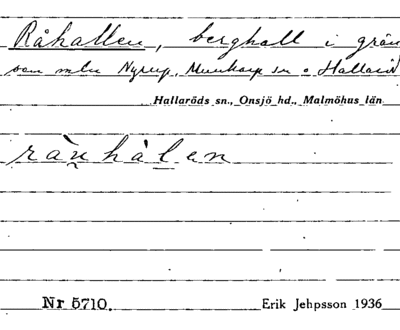 Råhallen, berghall i grän
sen mln Nyrup, Munkarp sn o Hallaröd
Hallaröds sn., Onsjö hd., Malmöhus län
rån hålen
Nr 5710.
Erik Jehpsson 1936